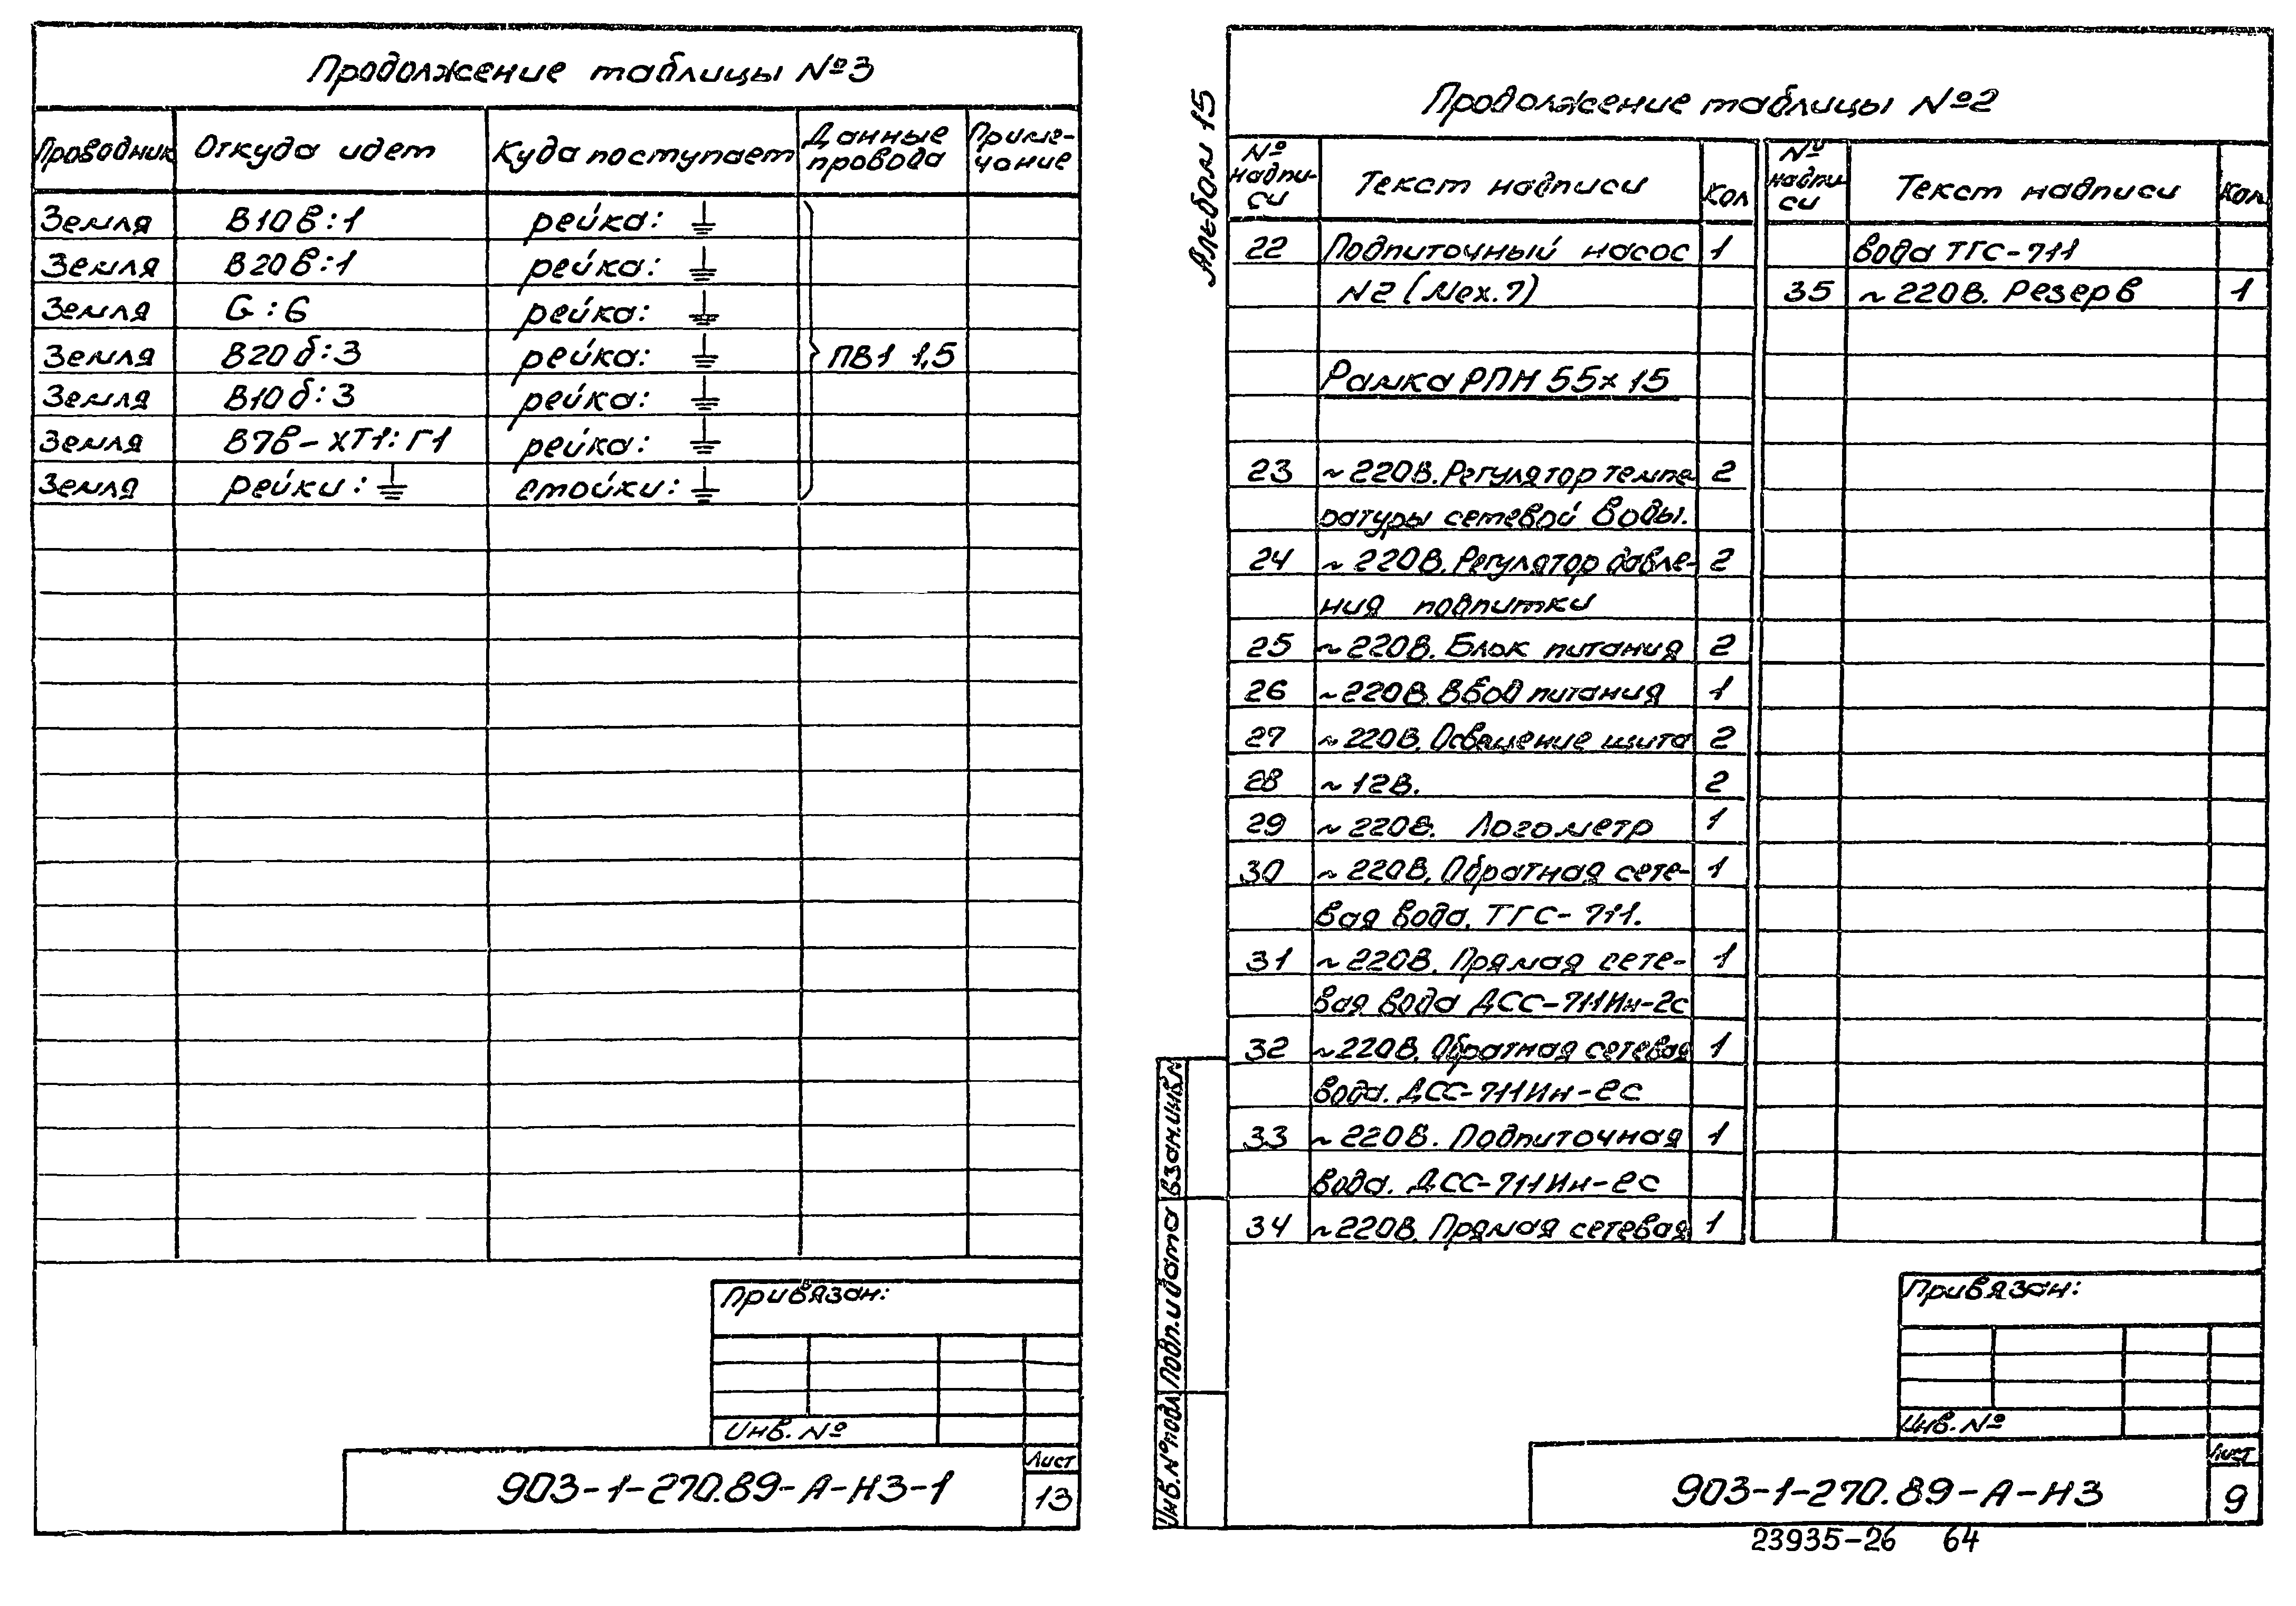 Продолжение таблицы №3
Проводник Откуда идет Куда поступает Данные провода Примечание
Земля В10в:1 рейка: ⏚
Земля В20в:1 рейка: ⏚
Земля G:6 рейка: ⏚
Земля В20б:3 рейка: ⏚ ПВ1 1,5
Земля В10б:3 рейка: ⏚
Земля В7в-ХТ1:Г1 рейка: ⏚
Земля рейки: ⏚ стойки: ⏚
Привязан:
Инв. №
903-1-270.89-А-НЗ-1
Лист
13
Альбом 15
Продолжение таблицы №2
№ надписи Текст надписи Кол № надписи Текст надписи Кол
22 Подпиточный насос 1 вода ТГС-711
N2 (Мех.7) 35 ~220В. Резерв 1
Рамка РПН 55х15
23 ~220В. Регулятор темпе 2
ратуры сетевой воды.
24 ~220В. Регулятор давле- 2
ния подпитки
25 ~220В. Блок питания 2
26 ~220В. Ввод питания 1
27 ~220В. Освещение щита 2
28 ~12В. 2
29 ~220В. Логометр 1
30 ~220В. Обратная сете- 1
вая вода. ТГС-711.
31 ~220В. Прямая сете- 1
вая вода ДСС-711Ин-2с
32 ~220В. Обратная сетевая 1
вода. ДСС-711Ин-2с
33 ~220В. Подпиточная 1
вода. ДСС-711Ин-2с
34 ~220В. Прямая сетевая 1
Взам.инв.№
Подп. и дата
Инв.№ подл
Привязан:
Инв. №
903-1-270.89-А-НЗ
Лист
9
23935-26 64